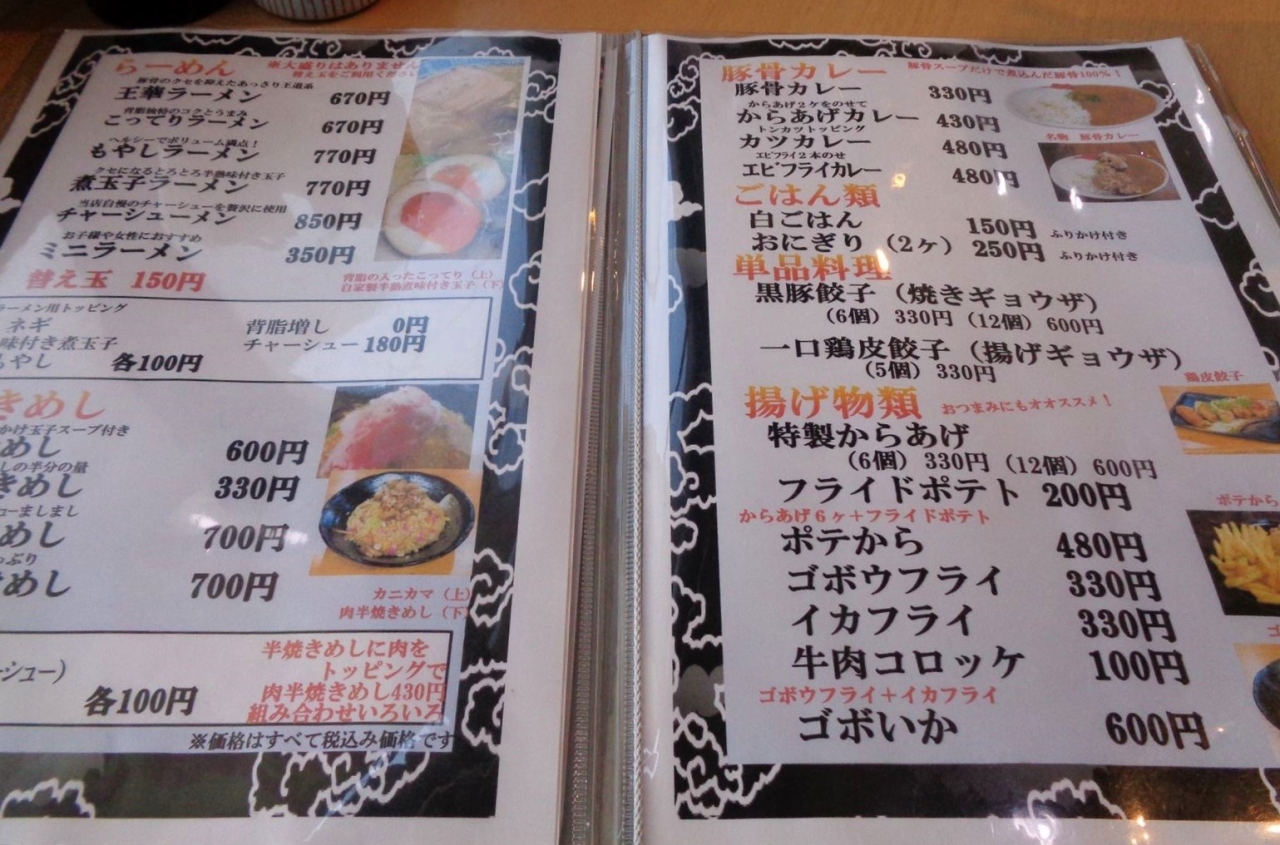 らーめん
※大盛りはありません
替え玉をご利用ください
豚骨のクセを抑えたあっさり王道系
王華ラーメン 670円
背脂独特のコクとうまみ
こってりラーメン 670円
ヘルシーでボリューム満点！
もやしラーメン 770円
クセになるとろとろ半熟味付き玉子
煮玉子ラーメン 770円
当店自慢のチャーシューを贅沢に使用
チャーシューメン 850円
お子様や女性におすすめ
ミニラーメン 350円
替え玉 150円
背脂の入ったこってり（上）
自家製半熟煮味付き玉子（下）
ラーメン用トッピング
ネギ 背脂増し 0円
味付き煮玉子 チャーシュー 180円
もやし 各100円
きめし
かけ玉子スープ付き
めし 600円
しの半分の量
きめし 330円
ューましまし
めし 700円
っぷり
めし 700円
カニカマ（上）
肉半焼きめし（下）
ーシュー）
各100円
半焼きめしに肉を
トッピングで
肉半焼きめし430円
組み合わせいろいろ
※価格はすべて税込み価格です
豚骨カレー
豚骨スープだけで煮込んだ豚骨100%！
豚骨カレー 330円
からあげ2ケをのせて
からあげカレー 430円
トンカツトッピング
カツカレー 480円
エビフライ2本のせ
エビフライカレー 480円
名物 豚骨カレー
ごはん類
白ごはん 150円 ふりかけ付き
おにぎり（2ヶ） 250円 ふりかけ付き
単品料理
黒豚餃子（焼きギョウザ）
（6個）330円（12個）600円
一口鶏皮餃子（揚げギョウザ）
（5個）330円
鶏皮餃子
揚げ物類 おつまみにもオオススメ！
特製からあげ
（6個）330円（12個）600円
フライドポテト 200円
からあげ6ヶ＋フライドポテト
ポテから 480円
ポテから
ゴボウフライ 330円
イカフライ 330円
牛肉コロッケ 100円
ゴボウフライ＋イカフライ
ゴボいか 600円